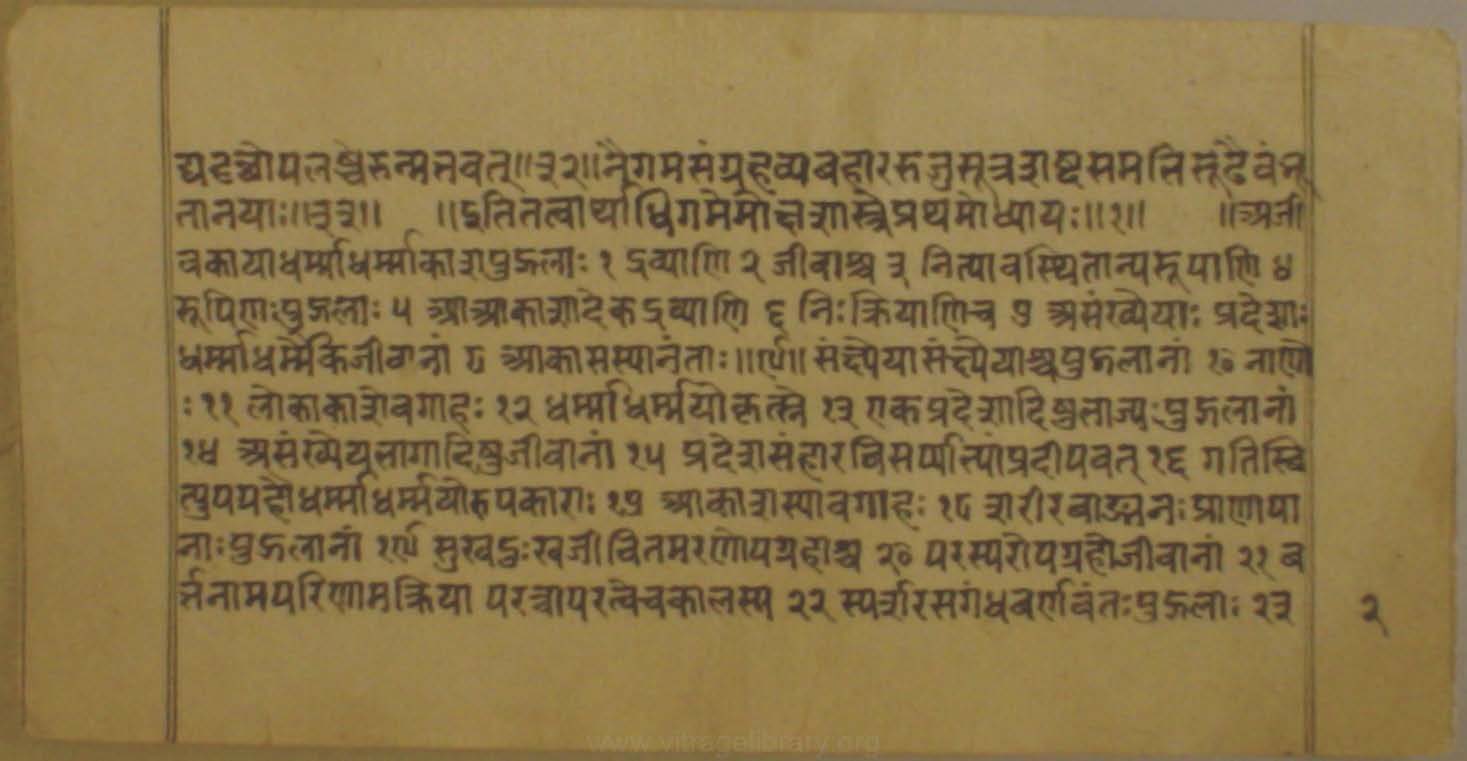 द्यदृच्छोपलब्धेरुन्मत्तवत्॥३२॥नैगमसंग्रहव्यवहाररुजुसूत्रशब्दसमभिरूढैवंभू
तानयाः॥३३॥ ॥इतितत्वार्थाधिगमेमोक्षशास्त्रेप्रथमोध्यायः॥१॥ ॥अजी
वकायाधर्म्माधर्म्माकाशपुद्गलाः १ द्रव्याणि २ जीवाश्च ३ नित्यावस्थितान्यरूपाणि ४
रूपिणःपुद्गलाः ५ आआकाशादेकद्रव्याणि ६ निःक्रियाणिच ७ असंख्येयाः प्रदेशाः
धर्म्माधर्म्मैकजीवानां ८ आकासस्यानंताः॥९॥ संख्येयासंख्येयाश्चपुद्गलानां १० नाणो
ः ११ लोकाकाशेवगाहः १२ धर्म्माधर्म्मयोकृत्स्ने १३ एकप्रदेशादिषुभाज्यःपुद्गलानां
१४ असंख्येयभागादिषुजीवानां १५ प्रदेशसंहारविसर्प्पाभ्यांप्रदीपवत् १६ गतिस्थि
त्युपग्रहौधर्म्माधर्म्मयोरुपकारः १७ आकाशस्यावगाहः १८ शरीरवाङ्मनःप्राणापा
नाःपुद्गलानां १९ सुखदुःखजीवितमरणोपग्रहाश्च २० परस्परोपग्रहोजीवानां २१ व
र्त्तनामपरिणामक्रिया परत्वापरत्वेचकालस्य २२ स्पर्शरसगंधवर्णवंतःपुद्गलाः २३
२
www.vitragelibrary.org